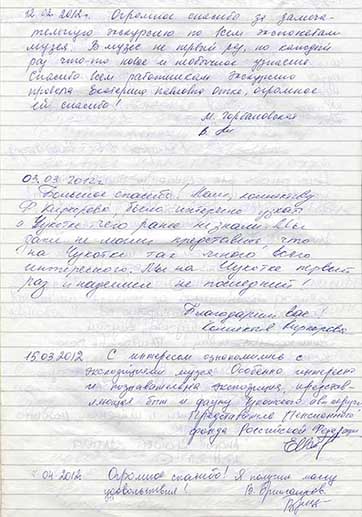 12.02.2012г. Огромное спасибо за замеча-
тельную экскурсию по всем экспонатам
музея. В музее не первый раз, но каждый
раз что-то новое и необычное узнаешь
Спасибо всем работникам. Экскурсию
провела Екатерина Павловна огромное
ей спасибо!
М. Горбановская
В.
03.03.2012г.
Большое спасибо! Нам, коллективу
Ф. Киркорова, было интересно узнать
о Чукотке чего ранее не знали
даже не могли представить, что
на Чукотке так много всего
интересного. Мы на Чукотке первый
раз и надеемся не последний!
Благодарим вас!
Коллектив Киркорова.
15.03.2012 С интересом ознакомились с
экспозициями музея. Особенно интересна
и познавательна экспозиция, представ-
ляющая быт и фауну Чукотского
Представители Пенсионного
фонда Российской Федерации
04.2012. Огромное спасибо! Я получил массу
удовольствия! В.